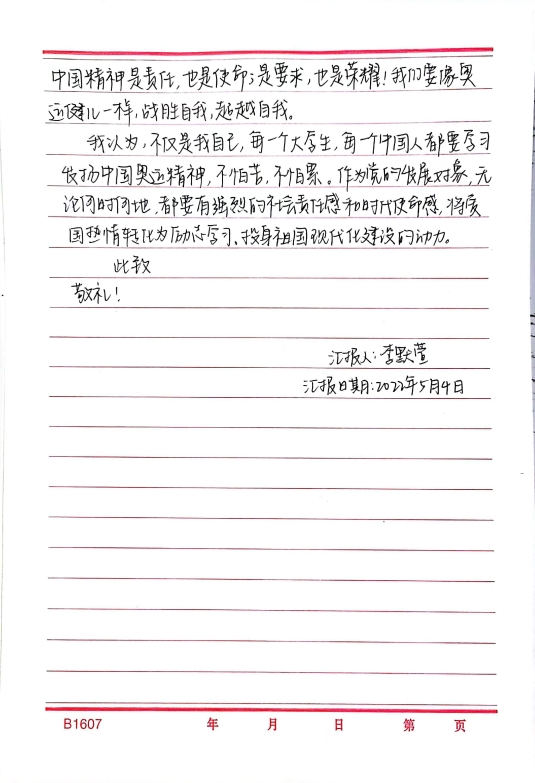 中国精神是责任,也是使命;是要求,也是荣耀!我们要像奥
运健儿一样,战胜自我,超越自我。
我认为,不仅是我自己,每一个大学生,每一个中国人都要学习
发扬中国奥运精神,不怕苦,不怕累。作为党的发展对象,无
论何时何地,都要有强烈的社会责任感和时代使命感,将爱
国热情转化为励志学习、投身祖国现代化建设的动力。
此致
敬礼!
汇报人:李默萱
汇报日期:2022年5月4日
B1607 年 月 日 第 页